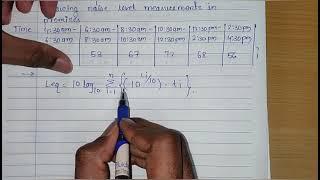 owing noise level measurements in
premises
Time 10:30am- 6:30am- 8:30am- 10:30am- 12:30pm- 2:30pm
6:30am 8:30am 10:30am 12:30pm 2:30pm 4:30pm
53 67 72 68 56
Leq = 10 log10 Σ i=1 n { (10^Li/10) · ti }